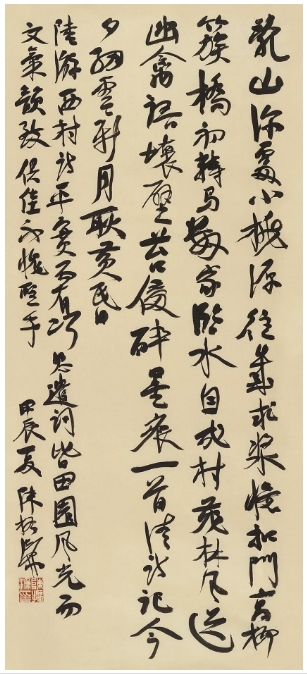 亂山深處小桃源往歲求漿憶扣門高柳
簇橋初轉馬數家臨水自成村茂林風送
幽禽語壞壁苔侵醉墨痕一首清詩記今
夕細雲新月耿黄昏
陸游西村詩平實而有巧思遣詞皆田園風光而
文氣韻致俱佳不愧聖手 甲辰夏 陳振濂